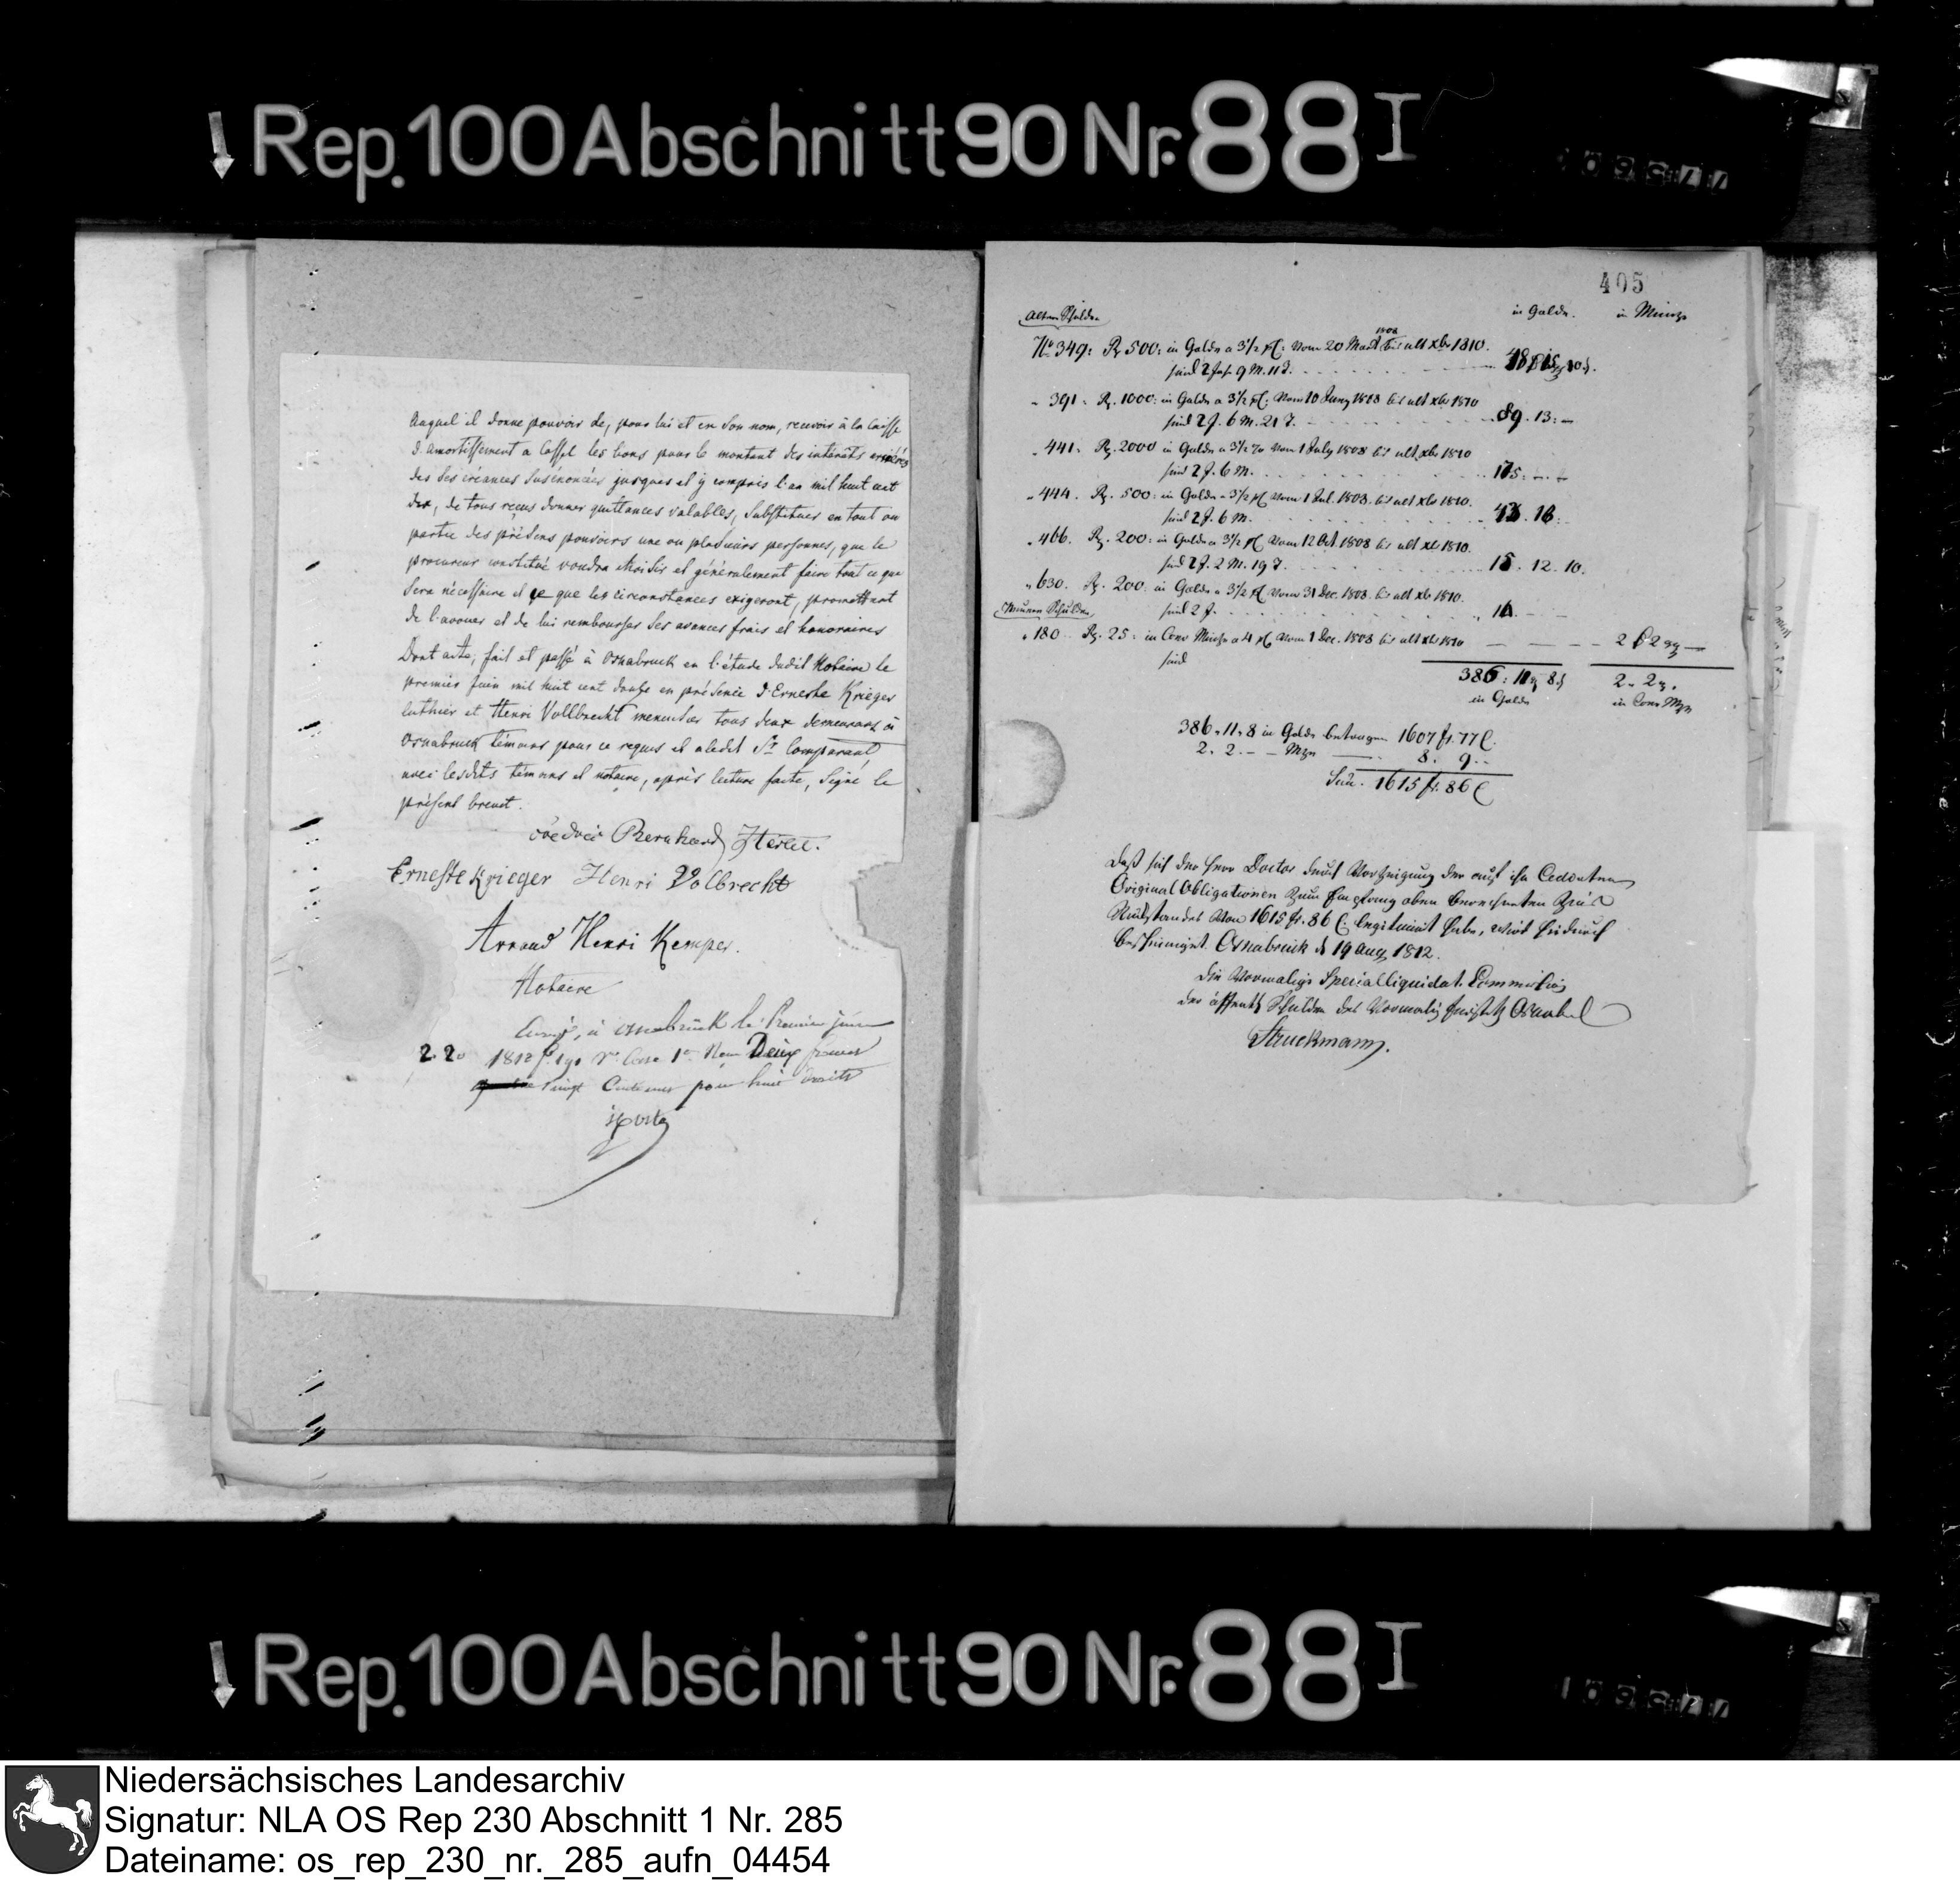 Rep. 100 Abschnitt 90 Nr. 88 I
auquel il donne pouvoir de, pour lui et en son nom, recevoir à la Caisse
d'amortissement a Cassel les bons pour le montant des intérêts arriérés
des ses créances susénoncées jusques et y compris l'an mil huit cent
dix, de tous reçus donner quittances valables, Substituer en tout ou
partie des présens pouvoirs une ou plusieurs personnes, que le
procureur constitué voudra choisir et généralement faire tout ce que
Sera nécessaire et ce que les circonstances exigeront, promettant
de l'avouer et de lui rembourser ses avances frais et honoraires
Dont acte, fait et passé à Osnabruck en l'étude dudit Notaire le
premier Juin mil huit cent douze en présence d'Erneste Krieger
luthier et Henri Vollbrecht menuisier tous deux demeurans à
Osnabruck témoins pour ce requis et a ledit Sr. Comparant,
avec lesdits témoins et notaire, après lecture faite, Signé le
présent brevet.
Bernhard
Erneste Krieger Henri Volbrecht
Arnaud Henri Kemper.
Notaire
à osnabrück le Premier juin
2.20 1812 Deux francs
vingt Centimes pour droits
405
alten Schulden in Golde. in Münze
No 349: R 500: in Golde a 3 1/2 pC: vom 20 Mart 1808 bis ult xbr 1810.
sind 2 Jah 9 M. 11 T.
" 391. R. 1000: in Golde a 3 1/2 pC: vom 10 Juny 1808 bis ult xbr 1810
sind 2 J. 6 M. 21 T. 89. 13: —
. 441. R. 2000 in Golde a 3 1/2 % vom 1 July 1808 bis ult xbr 1810
sind 2 J. 6 M. 175: — —
" 444. R. 500: in Golde a 3 1/2 pC vom 1 Jul. 1808. bis ult xbr 1810.
sind 2 J. 6 M. 43. 18:
. 466. R. 200: in Golde a 3 1/2 pC vom 12 Oct. 1808 bis ult xbr 1810.
sind 2 J. 2 M. 19 T. 15. 12. 10.
" 630. R. 200. in Golde a 3 1/2 pC vom 31 Dec. 1808. bis ult xbr 1810.
neuen Schulden sind 2 J. 14. —
" 180. R. 25: in Conv Münze a 4 pC vom 1 Dec. 1808 bis ult xbr 1810 — — — 2 R 2 gg —
sind
386: 11 g 8 d 2. 2 g.
in Golde in Conv Mze
386. 11. 8 in Golde betragen 1607 fr. 77 C.
2. 2. — Mze 8. 9..
Sum. 1615 fr. 86 C
Daß sich der Herr Doctor durch Vorzeigung der auf ihn Cedirten
Original Obligationen zum Empfang oben berechneten Zins
Rückstandes von 1615 fr. 86 C. legitimirt habe, wird hiedurch
bescheinigt. Osnabrück d 19 Aug 1812.
Die vormalige Special Liquidat. Commission
der öffentl Schulden des vormalig Osnabr
Struckmann.
Rep. 100 Abschnitt 90 Nr. 88 I
Niedersächsisches Landesarchiv
Signatur: NLA OS Rep 230 Abschnitt 1 Nr. 285
Dateiname: os_rep_230_nr._285_aufn_04454